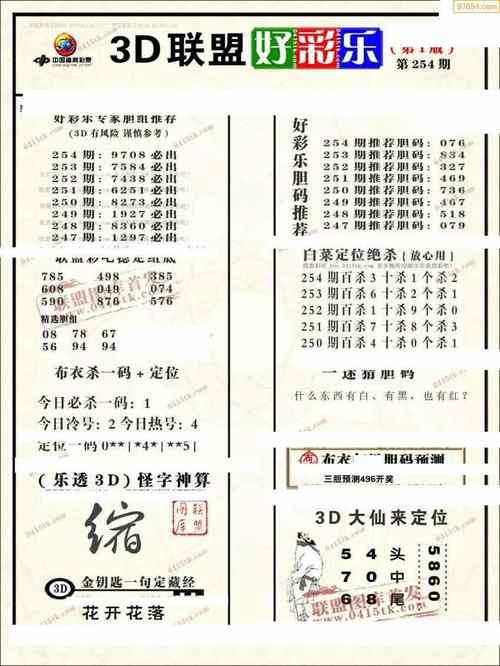 97654.com
中国福利彩票
3D联盟好彩乐
(第1版)
第254期
好彩乐专家胆组推荐
(3D有风险 谨慎参考)
254期:9708必出
253期:7584必出
252期:7438必出
251期:6251必出
250期:8273必出
249期:1927必出
248期:8360必出
247期:1297必出
联盟彩吧稳定组底
785 498 385
608 049 074
590 876 576
精选胆组
08 78 67
56 94 94
布衣杀一码+定位
今日必杀一码:1
今日冷号:2 今日热号:4
定位一码0**|*4*|**5|
(乐透3D)怪字神算
缩
联盟图库
3D
金钥匙一句定藏经
花开花落
好彩乐胆码推荐
254期推荐胆码:076
253期推荐胆码:834
252期推荐胆码:327
251期推荐胆码:469
250期推荐胆码:736
249期推荐胆码:467
248期推荐胆码:518
247期推荐胆码:079
白菜定位绝杀(放心用)
254期百杀3十杀1个杀2
253期百杀6十杀2个杀1
252期百杀1十杀9个杀0
251期百杀8十杀4个杀3
250期百杀4十杀0个杀1
一迷猜胆码
什么东西有白、有黑,也有红?
胆码预测
三胆预测496开奖
3D大仙来定位
54头
70中
68尾
5860
联盟图库首发
www.0415tk.com